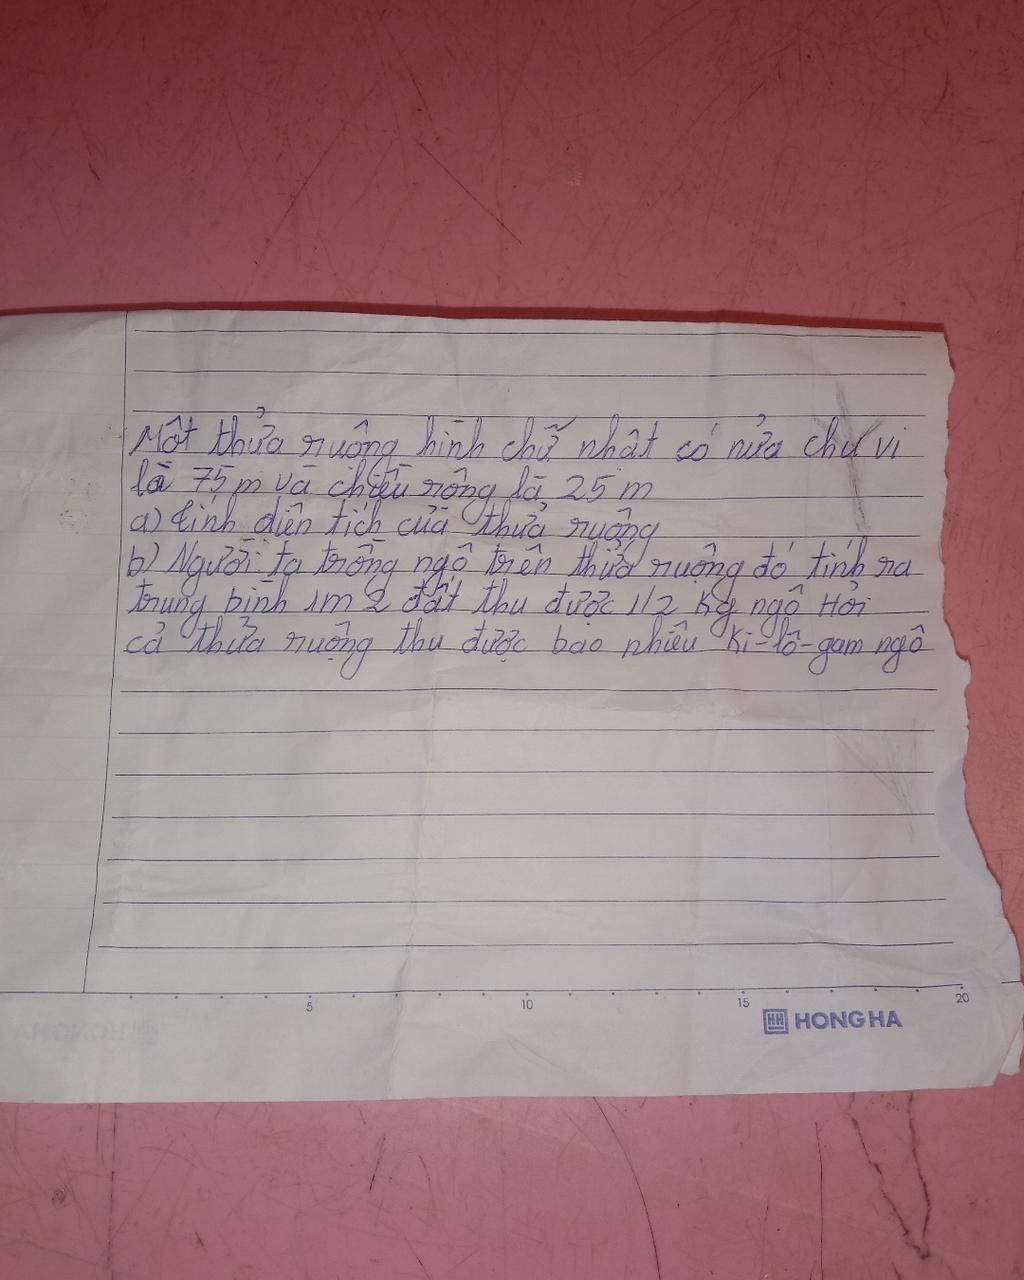 Một thửa ruộng hình chữ nhật có nửa chu vi
là 75m và chiều rộng là 25m
a) tính diện tích của thửa ruộng
b) Người ta trồng ngô trên thửa ruộng đó tính ra
trung bình 1m2 đất thu được 1/2 kg ngô Hỏi
cả thửa ruộng thu được bao nhiêu ki-lô-gam ngô
5 10 15 20
HH HONG HA